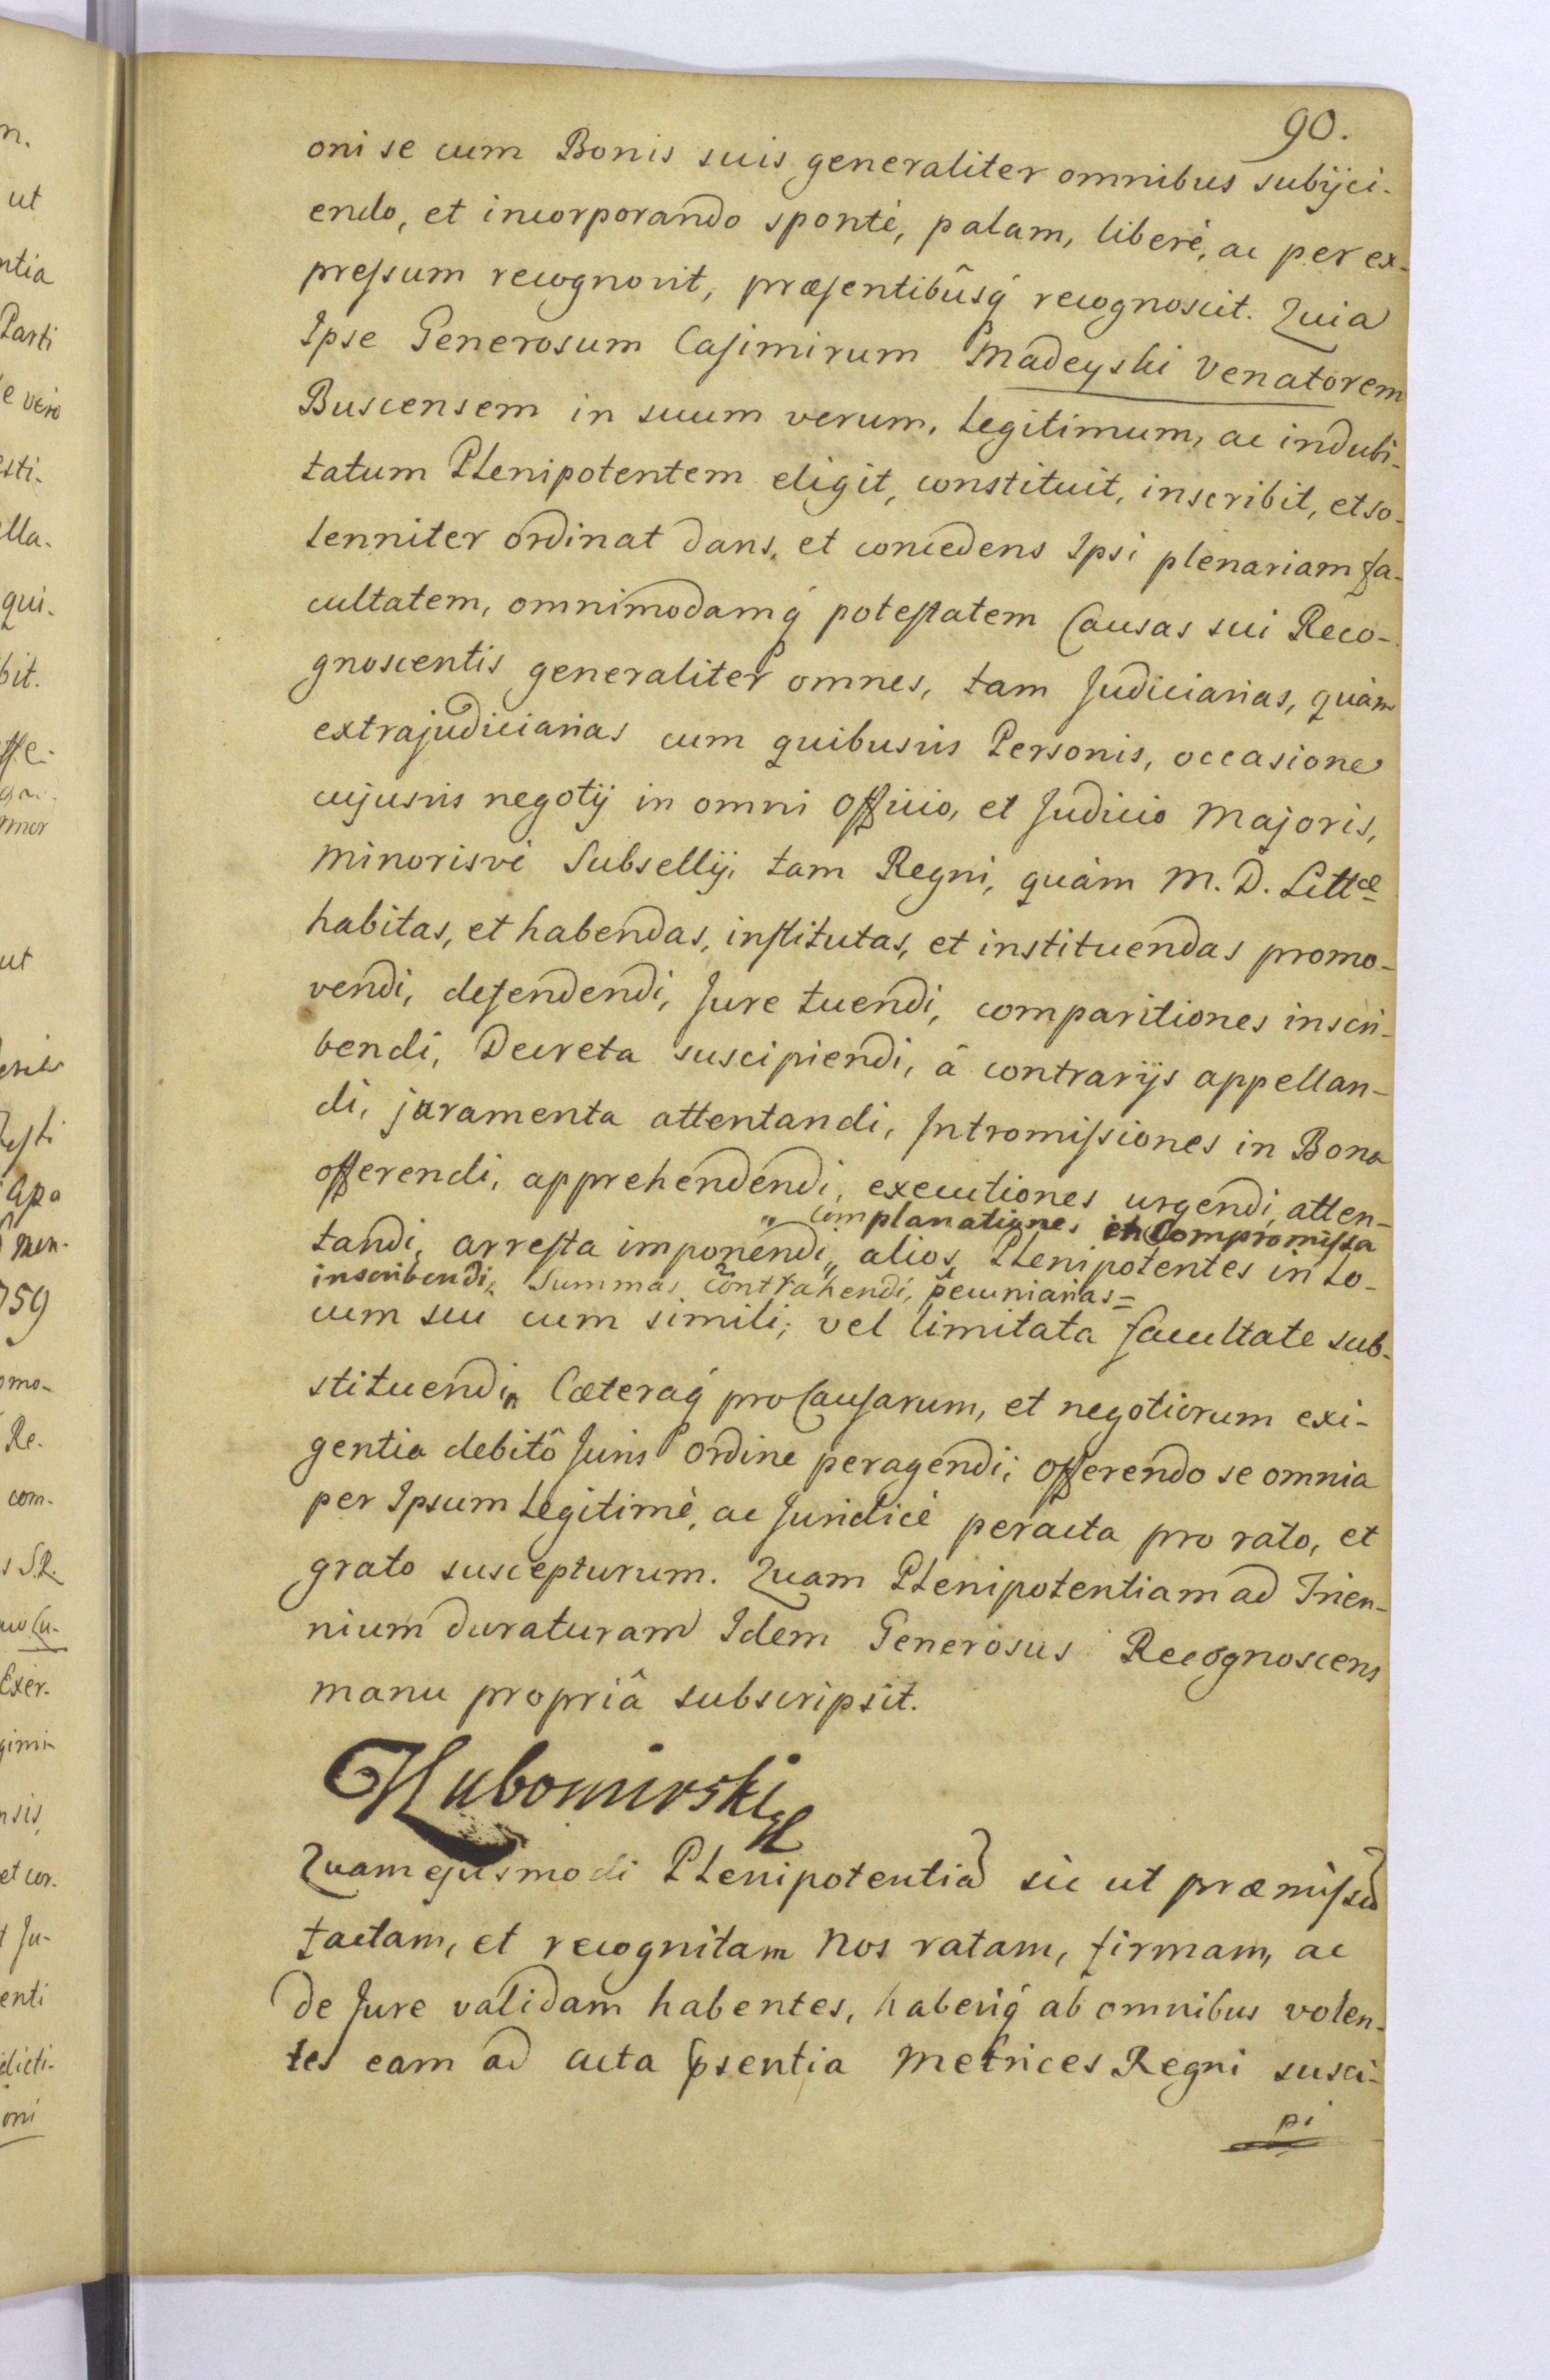 90.
oni se cum Bonis suis generaliter omnibus subijci-
endo, et incorporando spontè, palam, liberè, ac per ex-
pressum recognovit, præsentibûsq́ recognoscit. Quia
Ipse Generosum Casimirum Madeyski Venatorem
Buscensem in suum verum, Legitimum, ac indubi-
tatum Plenipotentem eligit, constituit, inscribit, et so-
lenniter ordinat dans, et concedens Ipsi plenariam fa-
cultatem, omnimodamq́ potestatem Causas sui Reco-
gnoscentis generaliter omnes, tam Judiciarias, quàm
extrajudiciarias cum quibusvis Personis, occasione
cujusvis negotij in omni Officio, et Judicio Majoris,
Minorisvè Subsellij, tam Regni, quàm M. D. Littæ
habitas, et habendas, institutas, et instituendas promo-
vendi, defendendi, Jure tuendi, comparitiones inscri-
bendi, Decreta suscipiendi, â contrarijs appellan-
di, juramenta attentandi, Intromissiones in Bona
offerendi, apprehendendi, executiones urgendi, atten-
„ complanationes et Compromissa
tandi, arresta imponendi„ alios Plenipotentes in lo-
inscribendi, Summas contrahendi, pecuniarias=
cum sui cum simili, vel limitata facultate sub-
stituendi, Cæteraq́ pro Causarum, et negotiorum exi-
gentia debitô Juris ordine peragendi; Offerendo se omnia
per Ipsum Legitimè, ac Juridicè peracta pro rato, et
grato suscepturum. Quam Plenipotentiam ad Trien-
nium duraturam Idem Generosus Recognoscens
manu propriâ subscripsit.
Lubomirski
Quam ejusmodi Plenipotentiã sic ut præmissũ
tactam, et recognitam Nos ratam, firmam, ac
de Jure validam habentes, haberiq́ ab omnibus volen-
tes eam ad acta psentia Metrices Regni susci-
pi